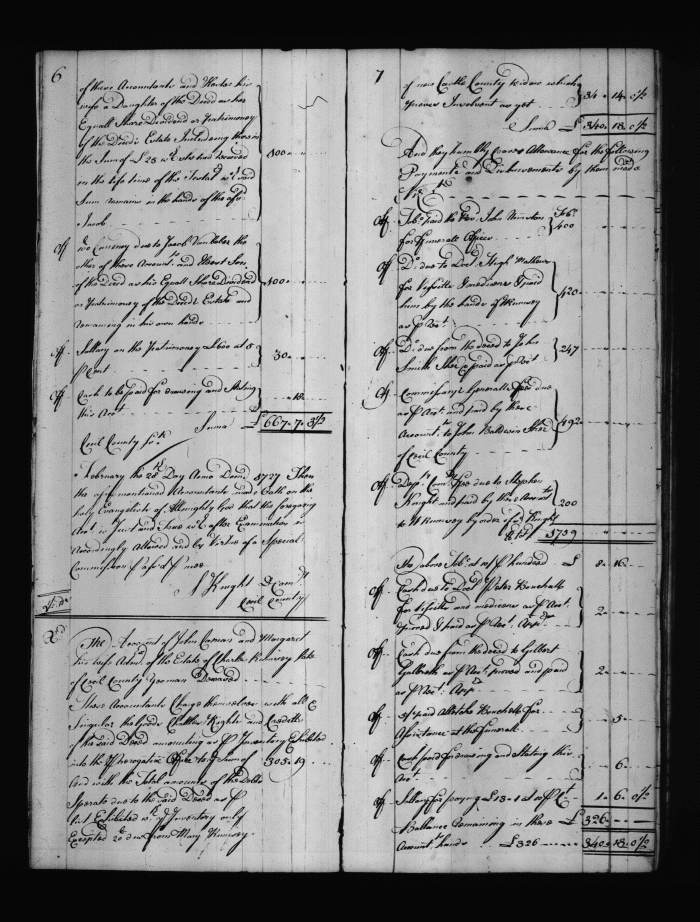 6
of these Accountants and Hester his
wife a Daughter of the Deced as her
Equall Share Dividend or Patrimony
of the Deced's Estate Including therein
the Sum of £ 28 wch she had Received
in the life time of the Testatr wch said
Sum remains in the hands of the afd
Jacob
100
off
in Currency due to Jacob the
other of these Accountts and Eldest Son
of the Deced as his Equall Share Dividend
or Patrimony of the Deced's Estate and
remaining in his own hands
100
off
Sallary on the Patrimony £600 at 5
p Cent
30
off
Cash to be paid for drawing and Stating
this Acct
18
Suma £ 667. 7. 3 1/2
Cecil County Sct
February the 28th Day Anno Domi 1727 Then
the aforementioned Accountants made Oath on the
holy Evangelists of Allmighty God that the foregoing
Acct is Just and True wch after Examination is
Accordingly Allowed and by Virtue of a Special
Commission p me
S Knight D Comry
Cecil County
The Account of John and Margaret
his wife Admx of the Estate of Charles Rumsey late
of Cecil County yeoman Deceased
These Accountants Charge themselves with all &
Singular the goods Chattles Rights and Credits
of the said Deced amounting as p Inventory Exhibited
into the Prerogative Office to the Sum of
305. 19
And with the Total amount of the Debts
Sperate due to the said Deced as p
List Exhibited wth ye Inventory only
Excepted due from Mary Rumsey
7
of new Castle County Widow which
proves Insolvent as yet
34. 14. 0 1/2
Suma £ 340. 13. 0 1/2
And they humbly crave Allowance for the following
Payments and Disbursements by them made
Vizt
off
Tobo paid the Revd John
for Funerall
Tobo
400
off
Do due to Doctr Hugh Matthews
for Visitts & medicines & paid
him by the hands of Wm Rumsey
as p Rct
420
off
Do due from the Deced to John
Smith & paid as p Rct
247
off
Commissary Generalls Fees due
as p Acct and paid by these
Accountts to John Baldwin Sher
of Cecil County
492
off
Depty Comrys Fees due to Stephen
Knight and paid by these Accountts
to W Rumsey by order of sd Knight
200
The above Tobo at 10/ p hundred £
8. 16
off
Cash due to Doctr Peter
for Visitts and medicines as p Acct
proved & paid as p Rct
2
off
Cash due from the Deced to Gilbert
Galbreth as p Acct proved and paid
as p Rct
2
off
for
Assistance at the Funerall
5
off
Cash paid for drawing and Stating this
Acct
6
off
Sallary for paying £ 13. 1 at 10 p Ct
1. 6. 0 1/2
Ballance remaining in these
Accountts hands £ 326
£ 326
340. 13. 0 1/2